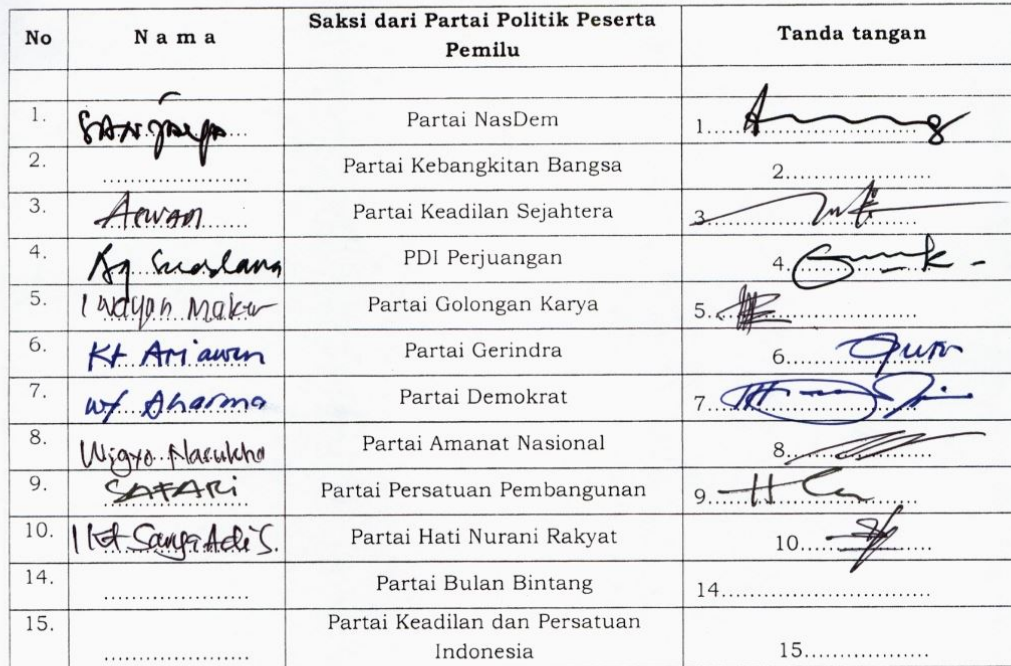 No N a m a Saksi dari Partai Politik Peserta Pemilu Tanda tangan
1. Partai NasDem 1....................
2. .................... Partai Kebangkitan Bangsa 2....................
3. Aewan Partai Keadilan Sejahtera 3....................
4. PDI Perjuangan 4....................
5. I Wayan Maker Partai Golongan Karya 5....................
6. Kt Ariawan Partai Gerindra 6....................
7. Wy Dharma Partai Demokrat 7....................
8. Wigyo Nasukha Partai Amanat Nasional 8....................
9. SAFARi Partai Persatuan Pembangunan 9....................
10. I Kt Sanga Adi S. Partai Hati Nurani Rakyat 10....................
14. .................... Partai Bulan Bintang 14....................
15. .................... Partai Keadilan dan Persatuan Indonesia 15....................